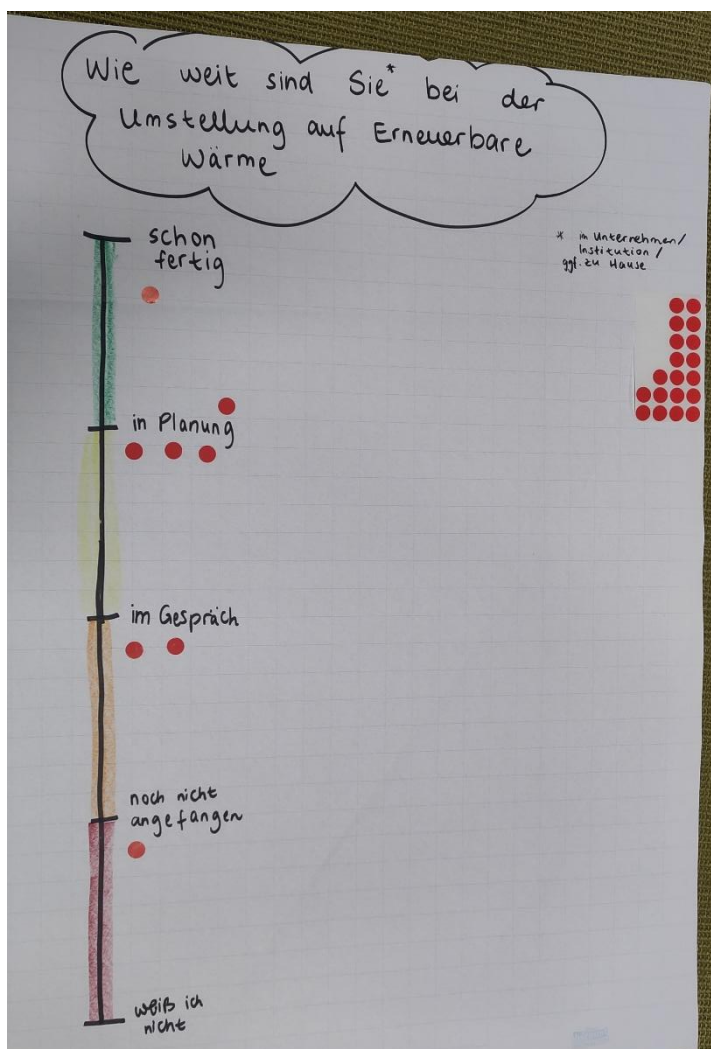 Wie weit sind Sie* bei der
Umstellung auf Erneuerbare
Wärme
* im Unternehmen/
Institution/
ggf. zu Hause
schon
fertig
in Planung
im Gespräch
noch nicht
angefangen
weiß ich
nicht